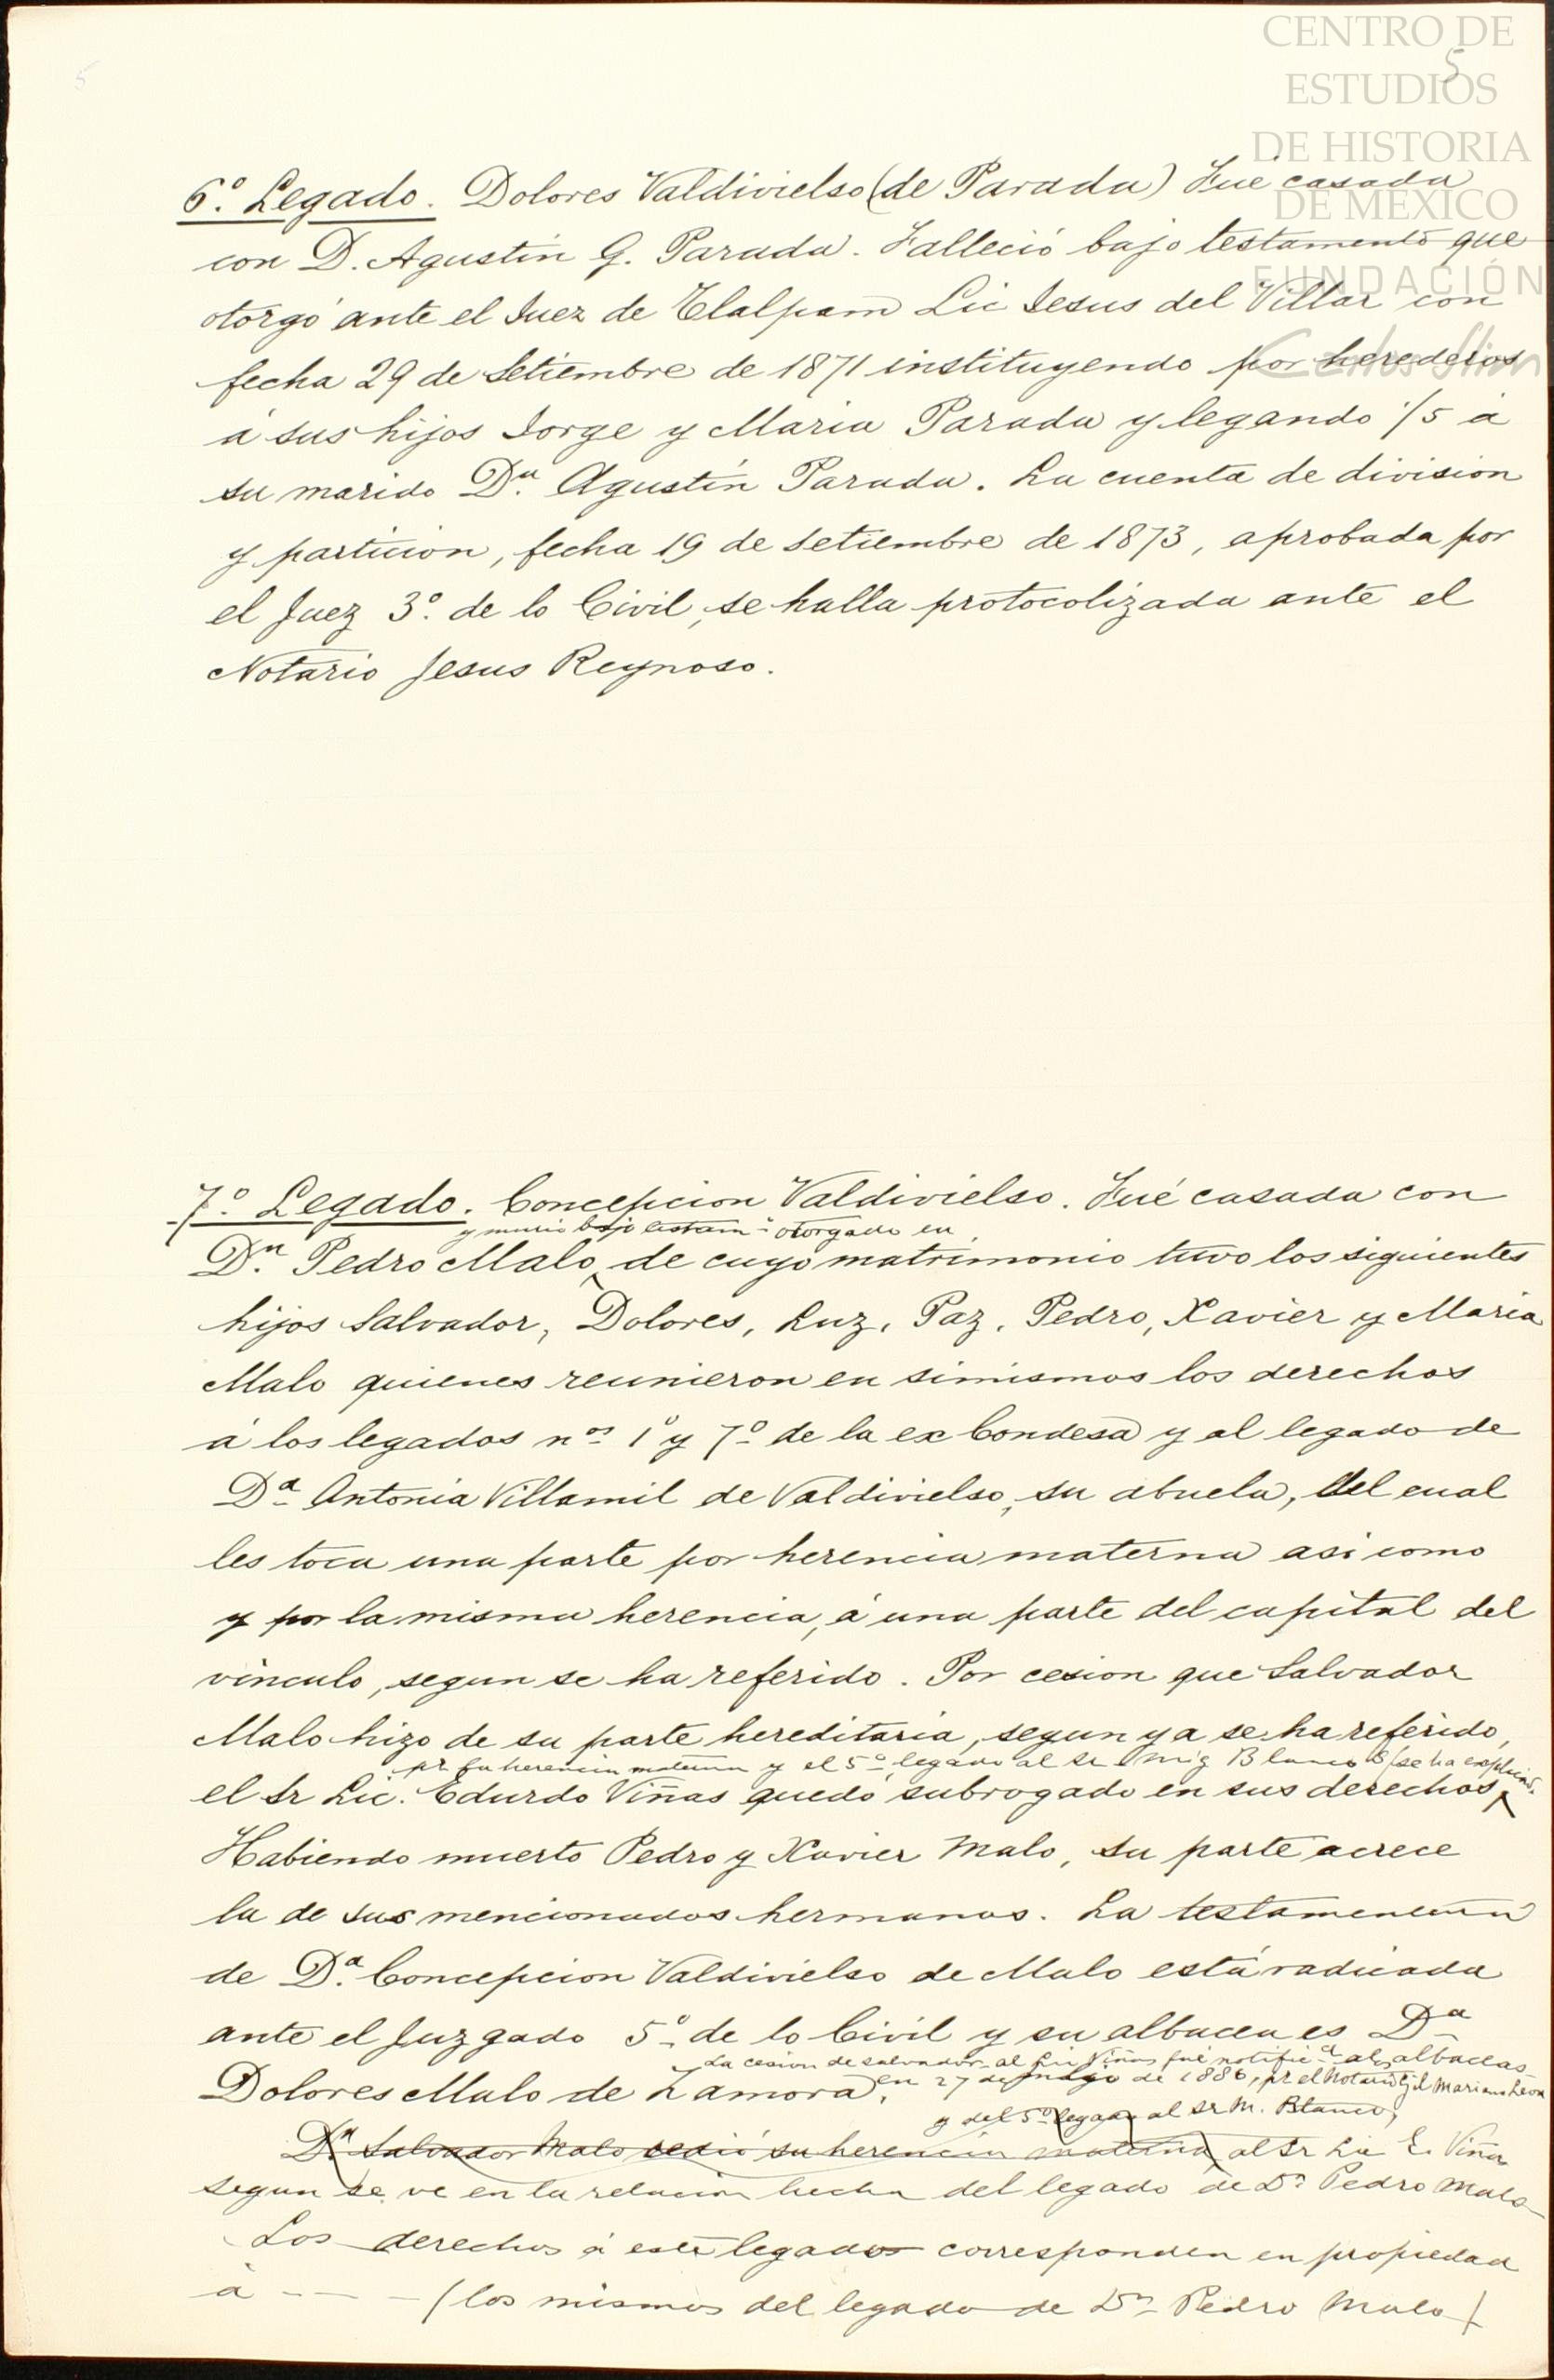 CENTRO DE
ESTUDIOS
DE HISTORIA
DE MEXICO
FUNDACIÓN
Carlos Slim
5
5
6.º Legado. Dolores Valdivielso (de Parada) Fué casada
con D. Agustin G. Parada. Falleció bajo testamento que
otorgó ante el Juez de Tlalpam Lic Jesus del Villar con
fecha 29 de Setiembre de 1871 instituyendo por herederos
á sus hijos Jorge y Maria Parada y legando 1/5 á
su marido Dn. Agustin Parada. La cuenta de division
y particion, fecha 19 de Setiembre de 1873, aprobada por
el Juez 3.º de lo Civil, se halla protocolizada ante el
Notario Jesus Reynoso.
7.º Legado. Concepcion Valdivielso. Fué casada con
y murió bajo testam.º otorgado en
Dn. Pedro Malo, de cuyo matrimonio tuvo los siguientes
hijos Salvador, Dolores, Luz, Paz, Pedro, Xavier y Maria
Malo quienes reunieron en simismos los derechos
á los legados nos 1º y 7º de la ex Condesa y al legado de
Da Antonia Villamil de Valdivielso, su abuela, del cual
les toca una parte por herencia materna asi como
y por la misma herencia, á una parte del capital del
vinculo, segun se ha referido. Por cesion que Salvador
Malo hizo de su parte hereditaria, segun ya se ha referido,
pr. su herencia materna y el 5º legado al Sr Blanco se ha
el Sr Lic. Edurdo Viñas quedó subrogado en sus derechos
Habiendo muerto Pedro y Xavier Malo, su parte acrece
la de sus mencionados hermanos. La testamentaria
de Da. Concepcion Valdivielso de Malo está radicada
ante el Juzgado 5º de lo Civil y su albacea es Da
La cesion de Salvador al Lic Viñas fué notific.da al albaceas
Dolores Malo de Zamora, en 27 de Mayo de 1886, pr el Notario Gil Mariano Leon
y del 5º legado al Sr M. Blanco,
Dn Salvador Malo cedió su herencia materna al Sr Lic E. Viña
segun se ve en la relacion hecha del legado de Dn Pedro Malo
Los derechos á este legado corresponden en propiedad
á - - - (los mismos del legado de Dn Pedro Malo)